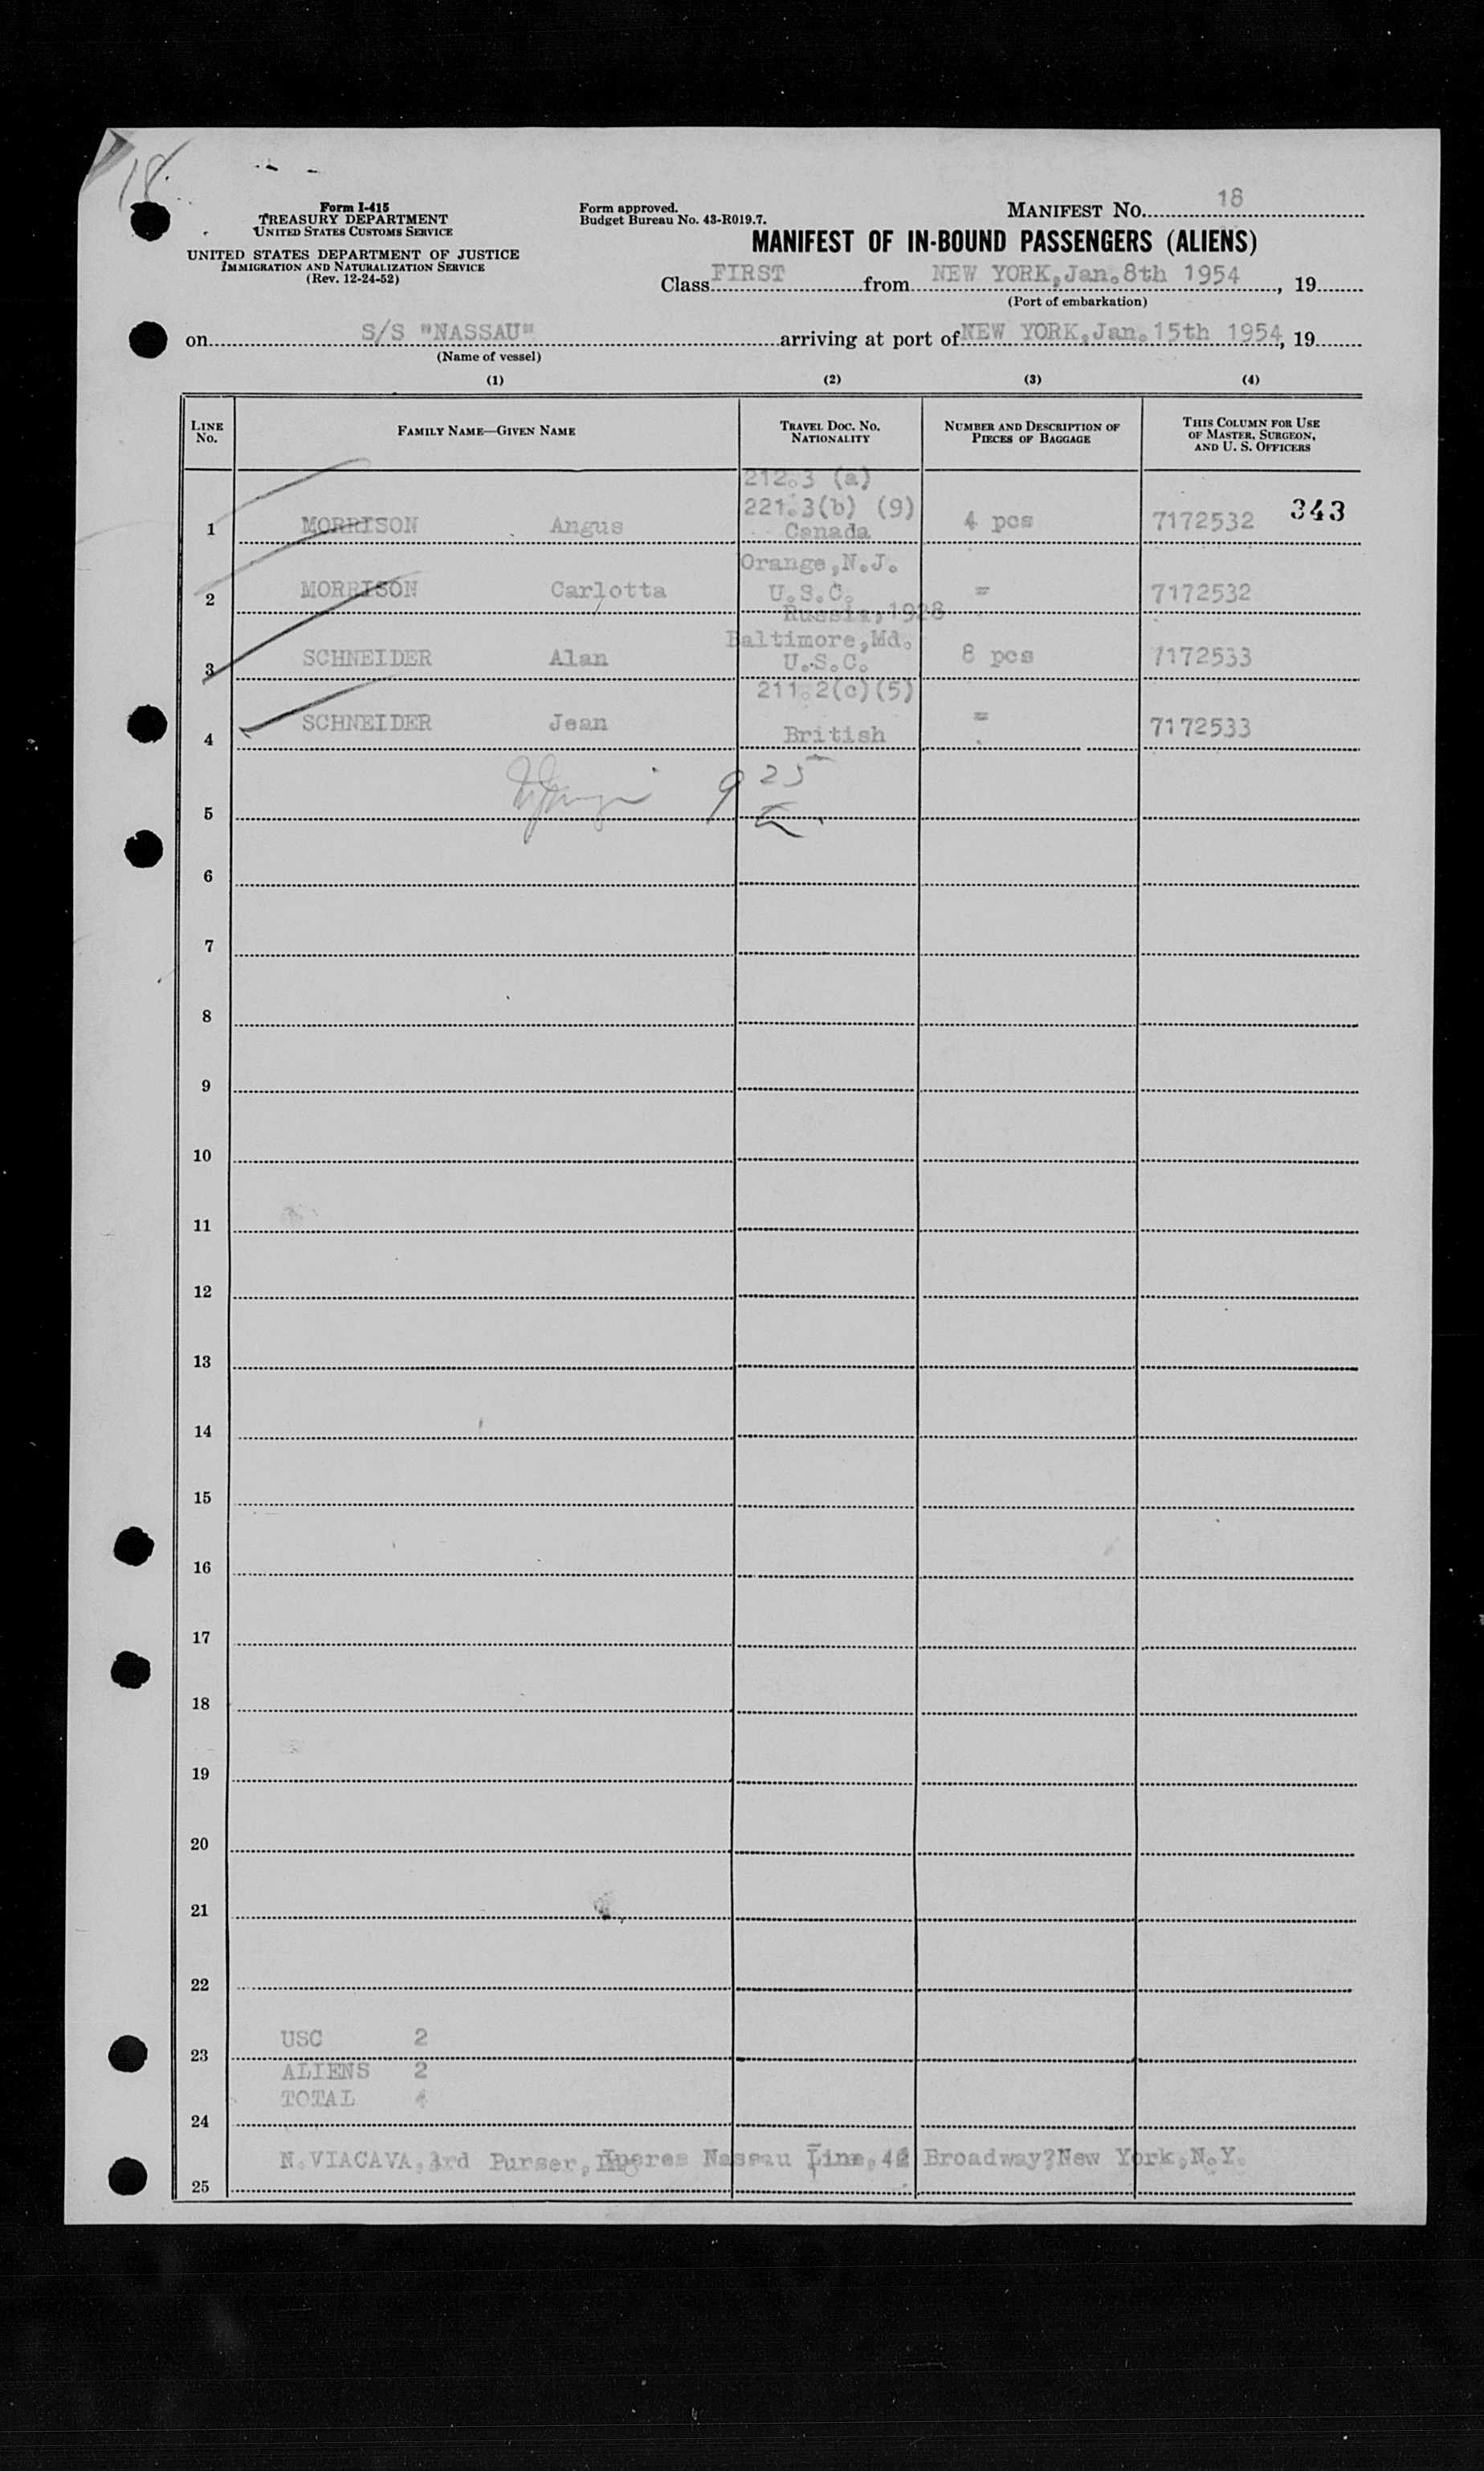 18
Form I-415
TREASURY DEPARTMENT
UNITED STATES CUSTOMS SERVICE
UNITED STATES DEPARTMENT OF JUSTICE
IMMIGRATION AND NATURALIZATION SERVICE
(Rev. 12-24-52)
Form approved.
Budget Bureau No. 43-R019.7.
MANIFEST NO. 18
MANIFEST OF IN-BOUND PASSENGERS (ALIENS)
Class FIRST from NEW YORK, Jan. 8th 1954, 19
(Port of embarkation)
on S/S "NASSAU" arriving at port of NEW YORK, Jan. 15th 1954, 19
(Name of vessel)
(1) (2) (3) (4)
LINE NO. FAMILY NAME—GIVEN NAME TRAVEL DOC. NO. NATIONALITY NUMBER AND DESCRIPTION OF PIECES OF BAGGAGE THIS COLUMN FOR USE OF MASTER, SURGEON, AND U. S. OFFICERS
212.3 (a)
221.3(b) (9)
1 MORRISON Angus Canada 4 pcs 7172532 343
Orange, N.J.
2 MORRISON Carlotta U.S.C. = 7172532
Russia, 1928
Baltimore, Md.
3 SCHNEIDER Alan U.S.C. 8 pcs 7172533
211.2(c)(5)
4 SCHNEIDER Jean British = 7172533
9 25
5
6
7
8
9
10
11
12
13
14
15
16
17
18
19
20
21
22
USC 2
23
ALIENS 2
TOTAL 4
24
N. VIACAVA, 3rd Purser, Nassau Line, 42 Broadway?New York, N.Y.
25